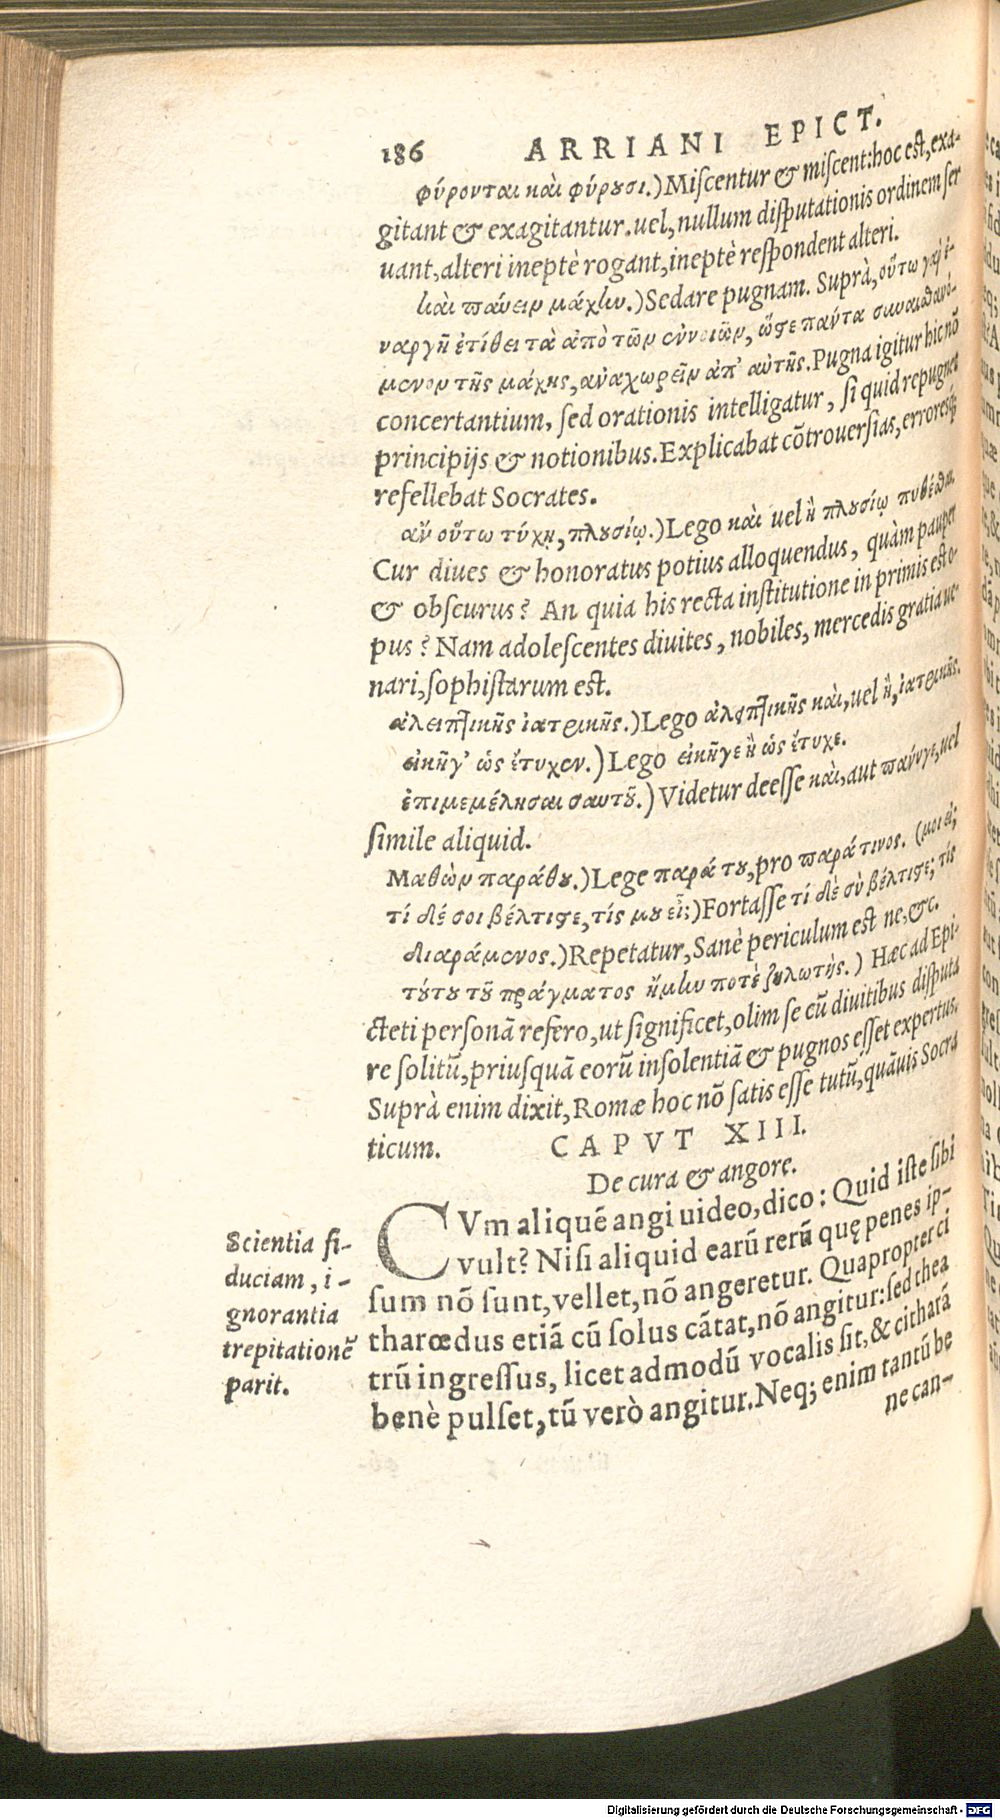 186 ARRIANI EPICT.
φύρονται καὶ φύρουσι.) Miſcentur & miſcent: hoc eſt, exa-
gitant & exagitantur. uel, nullum diſputationis ordinem ſer
uant, alteri ineptè rogant, ineptè reſpondent alteri.
καὶ παύειν μάχην.) Sedare pugnam. Suprà, οὕτω γαρ ἐ-
ναργῆ ἐτίθει τὰ ἀπὸ τῶν ἐννοιῶν, ὥστε παντα συναισθανό-
μενον τῆς μάχης, ἀναχωρεῖν ἀπ' αὐτῆς. Pugna igitur hic nō
concertantium, ſed orationis intelligatur, ſi quid repugnet
principijs & notionibus. Explicabat cōtrouerſias, erroresq́;
refellebat Socrates.
ἂν οὕτω τύχῃ, πλουσίῳ.) Lego καὶ uel ἢ πλουσίῳ πυθέσθαι.
Cur diues & honoratus potius alloquendus, quàm pauper
& obſcurus? An quia his recta inſtitutione in primis eſt o-
pus? Nam adoleſcentes diuites, nobiles, mercedis gratia ue-
nari, ſophiſtarum eſt.
ἀλειπτικῆς ἰατρικῆς.) Lego ἀλειπτικῆς καὶ, uel ἢ, ἰατρικῆς.
εἰκῆγ' ὡς ἔτυχεν.) Lego εἰκῆγε ἢ ὡς ἔτυχε.
ἐπιμεμέλησαι σαυτοῦ.) Videtur deeſſe καὶ, aut πάνυγε, uel
ſimile aliquid.
Μαθὼν παράθου.) Lege παρά του, pro παρά τινος. (μοι εἶ;
τί δέ σοι βέλτιστε, τίς μου εἶ;) Fortaſſe τί δέ σὺ βέλτιστε; τίς
διαράμενος.) Repetatur, Sanè periculum eſt ne, &c.
τούτου τοῦ πράγματος ἤμην ποτὲ ζηλωτής.) Hæc ad Epi-
cteti perſonā refero, ut ſignificet, olim ſe cū diuitibus diſputa
re ſolitū, priuſquā eorū inſolentiā & pugnos eſſet expertus.
Suprà enim dixit, Romæ hoc nō ſatis eſſe tutū, quāuis Socra
ticum.
CAPVT XIII.
De cura & angore.
CVm aliquē angi uideo, dico: Quid iſte ſibi
vult? Niſi aliquid earū rerū quę penes ip-
ſum nō ſunt, vellet, nō angeretur. Quapropter ci
tharœdus etiā cū ſolus cātat, nō angitur: ſed thea
trū ingreſſus, licet admodū vocalis ſit, & citharā
benè pulſet, tū verò angitur. Neq; enim tantū be
ne can-
Scientia fi-
duciam, i-
gnorantia
trepitationē
parit.
Digitalisierung gefördert durch die Deutsche Forschungsgemeinschaft - DFG